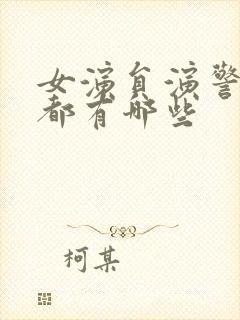 女演负演警
都有哪些
柯某